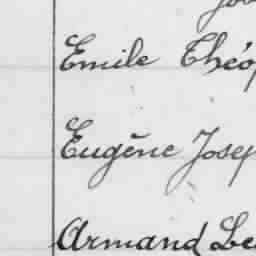 Emile Théo
Eugène Josep
Armand Le